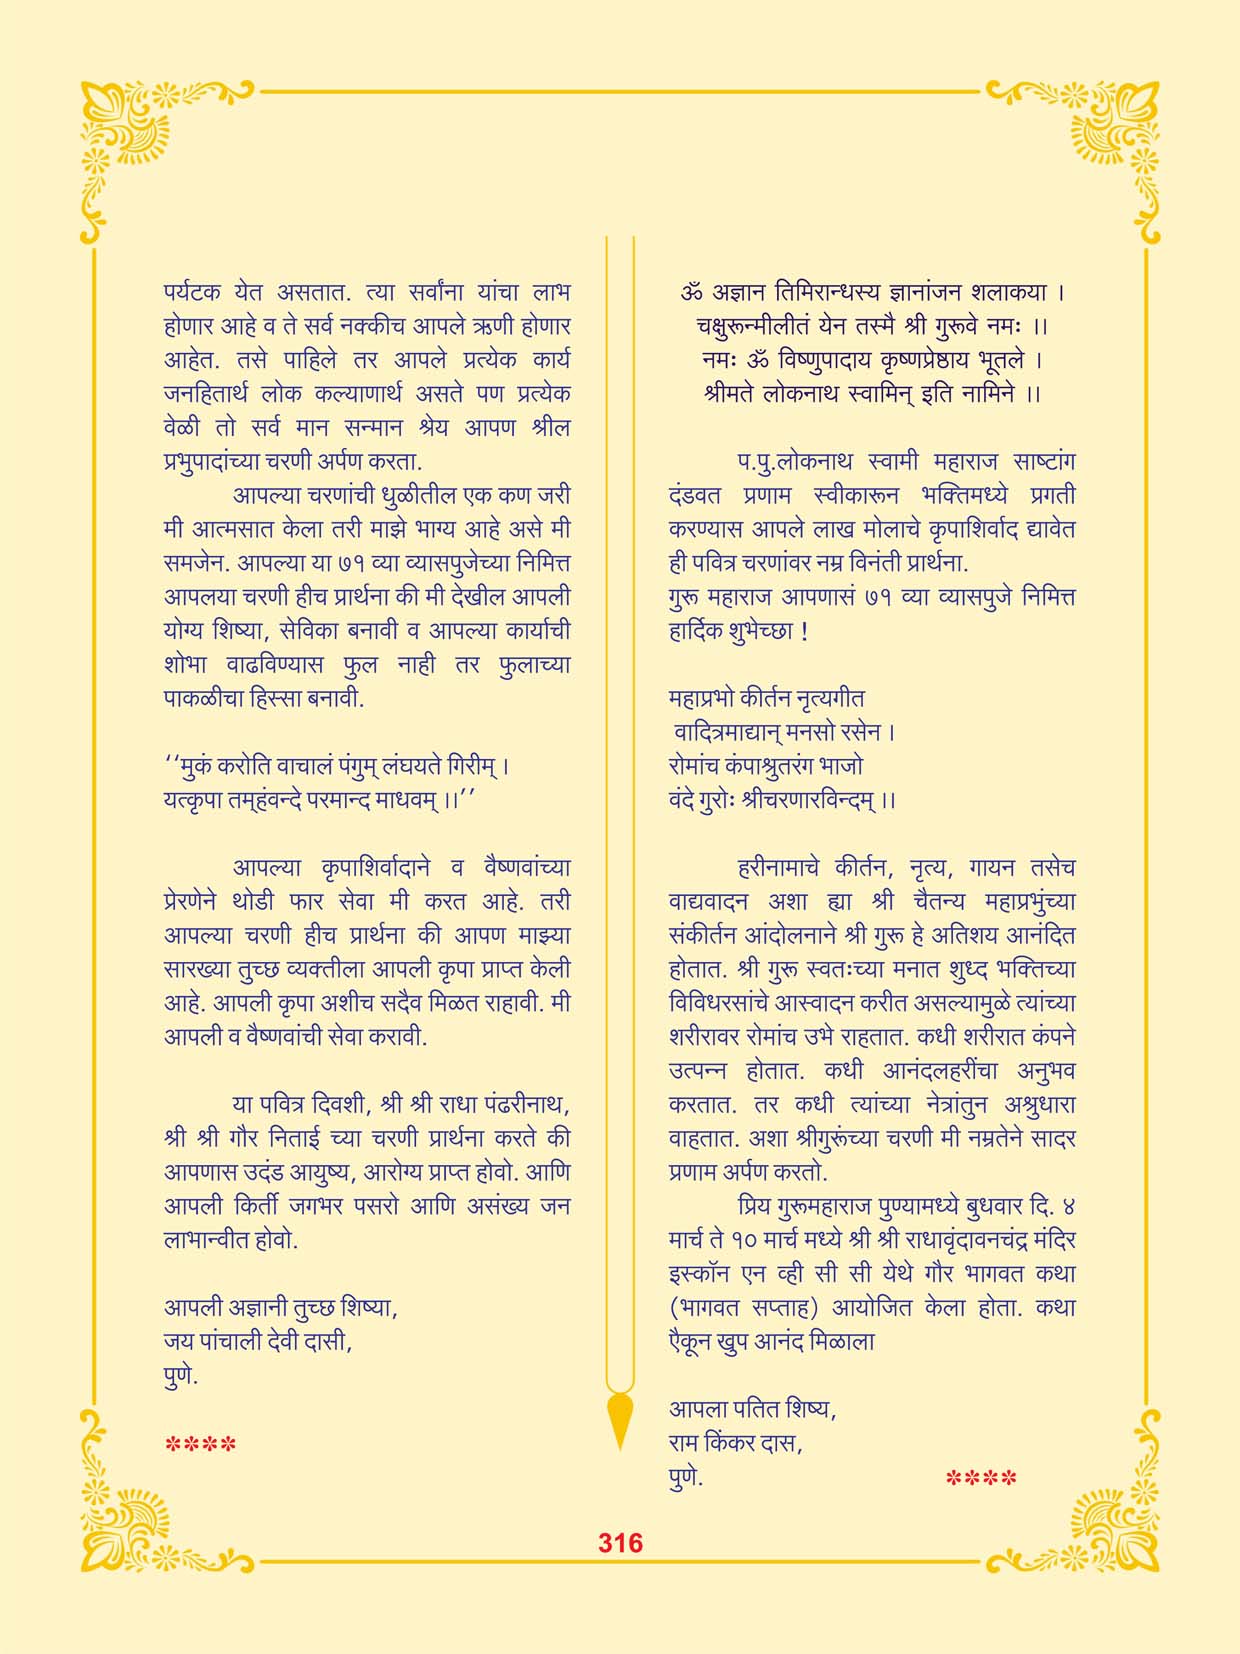 पर्यटक येत असतात. त्या सर्वांना यांचा लाभ
होणार आहे व ते सर्व नक्कीच आपले ऋणी होणार
आहेत. तसे पाहिले तर आपले प्रत्येक कार्य
जनहितार्थ लोक कल्याणार्थ असते पण प्रत्येक
वेळी तो सर्व मान सन्मान श्रेय आपण श्रील
प्रभुपादांच्या चरणी अर्पण करता.
आपल्या चरणांची धुळीतील एक कण जरी
मी आत्मसात केला तरी माझे भाग्य आहे असे मी
समजेन. आपल्या या ७१ व्या व्यासपुजेच्या निमित्त
आपलया चरणी हीच प्रार्थना की मी देखील आपली
योग्य शिष्या, सेविका बनावी व आपल्या कार्याची
शोभा वाढविण्यास फुल नाही तर फुलाच्या
पाकळीचा हिस्सा बनावी.
‘‘मुकं करोति वाचालं पंगुम् लंघयते गिरीम् ।
यत्कृपा तम्हंवन्दे परमान्द माधवम् ।।’’
आपल्या कृपाशिर्वादाने व वैष्णवांच्या
प्रेरणेने थोडी फार सेवा मी करत आहे. तरी
आपल्या चरणी हीच प्रार्थना की आपण माझ्या
सारख्या तुच्छ व्यक्तीला आपली कृपा प्राप्त केली
आहे. आपली कृपा अशीच सदैव मिळत राहावी. मी
आपली व वैष्णवांची सेवा करावी.
या पवित्र दिवशी, श्री श्री राधा पंढरीनाथ,
श्री श्री गौर निताई च्या चरणी प्रार्थना करते की
आपणास उदंड आयुष्य, आरोग्य प्राप्त होवो. आणि
आपली किर्ती जगभर पसरो आणि असंख्य जन
लाभान्वीत होवो.
आपली अज्ञानी तुच्छ शिष्या,
जय पांचाली देवी दासी,
पुणे.
****
ॐ अज्ञान तिमिरान्धस्य ज्ञानांजन शलाकया ।
चक्षुरून्मीलीतं येन तस्मै श्री गुरूवे नमः ।।
नमः ॐ विष्णुपादाय कृष्णप्रेष्ठाय भूतले ।
श्रीमते लोकनाथ स्वामिन् इति नामिने ।।
प.पु.लोकनाथ स्वामी महाराज साष्टांग
दंडवत प्रणाम स्वीकारून भक्तिमध्ये प्रगती
करण्यास आपले लाख मोलाचे कृपाशिर्वाद द्यावेत
ही पवित्र चरणांवर नम्र विनंती प्रार्थना.
गुरू महाराज आपणासं ७१ व्या व्यासपुजे निमित्त
हार्दिक शुभेच्छा !
महाप्रभो कीर्तन नृत्यगीत
वादित्रमाद्यान् मनसो रसेन ।
रोमांच कंपाश्रुतरंग भाजो
वंदे गुरोः श्रीचरणारविन्दम् ।।
हरीनामाचे कीर्तन, नृत्य, गायन तसेच
वाद्यवादन अशा ह्या श्री चैतन्य महाप्रभुंच्या
संकीर्तन आंदोलनाने श्री गुरू हे अतिशय आनंदित
होतात. श्री गुरू स्वतःच्या मनात शुध्द भक्तिच्या
विविधरसांचे आस्वादन करीत असल्यामुळे त्यांच्या
शरीरावर रोमांच उभे राहतात. कधी शरीरात कंपने
उत्पन्न होतात. कधी आनंदलहरींचा अनुभव
करतात. तर कधी त्यांच्या नेत्रांतुन अश्रुधारा
वाहतात. अशा श्रीगुरूंच्या चरणी मी नम्रतेने सादर
प्रणाम अर्पण करतो.
प्रिय गुरूमहाराज पुण्यामध्ये बुधवार दि. ४
मार्च ते १० मार्च मध्ये श्री श्री राधावृंदावनचंद्र मंदिर
इस्कॉन एन व्ही सी सी येथे गौर भागवत कथा
(भागवत सप्ताह) आयोजित केला होता. कथा
एैकून खुप आनंद मिळाला
आपला पतित शिष्य,
राम किंकर दास,
पुणे. ****
316